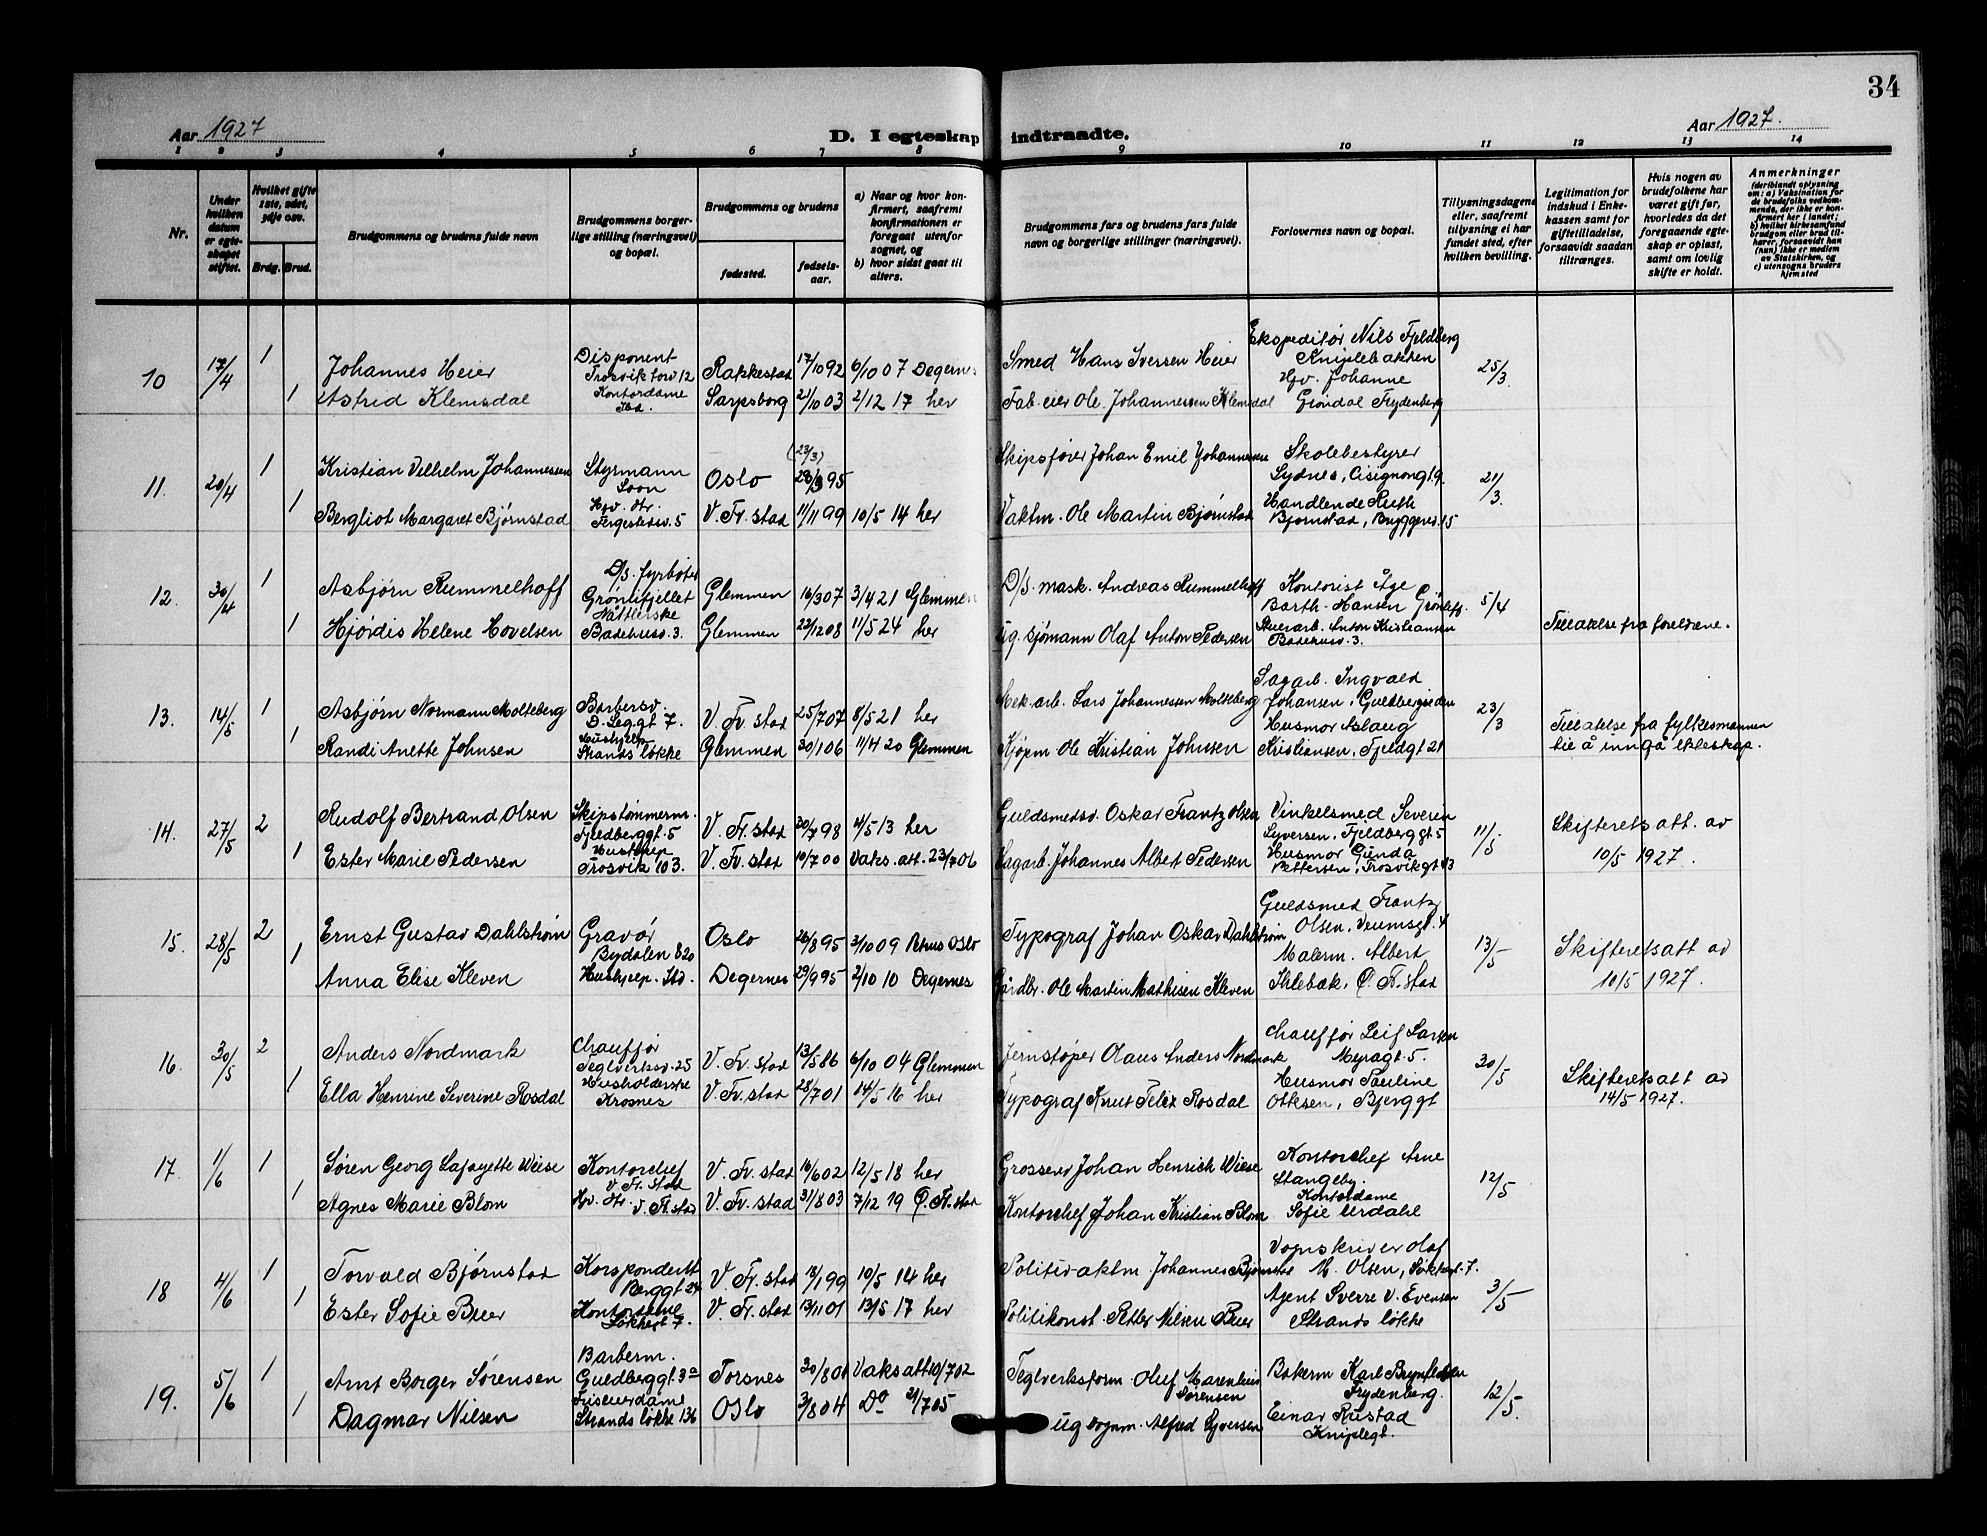 34
Aar 1927
D. I egteskap indtraadte.
Aar 1927.
1 2 3 4 5 6 7 8 9 10 11 12 13 14
Nr.
Under hvilken datum er egteskapet stiftet.
Hvilket gifte 1ste, 2det, 3dje osv.
Brdg. Brud.
Brudgommens og brudens fulde navn
Brudgommens borgerlige stilling (næringsvei) og bopæl.
Brudgommens og brudens
fødested.
fødselsaar.
a) Naar og hvor konfirmert, saafremt konfirmationen er foregaat utenfor sognet, og
b) hvor sidst gaat til alters.
Brudgommens fars og brudens fars fulde navn og borgerlige stillinger (næringsvei).
Forlovernes navn og bopæl.
Tillysningsdagene eller, saafremt tillysning ei har fundet sted, efter hvilken bevilling.
Legitimation for indskud i Enkekassen samt for giftetilladelse, forsaavidt saadan tiltrænges.
Hvis nogen av brudefolkene har været gift før, hvorledes da det foregaaende egteskap er opløst, samt om lovlig skifte er holdt.
Anmerkninger
(deriblandt oplysning om: a) Vaksination for de brudefolks vedkommende, der ikke er konfirmert her i landet; b) hvilket kirkesamfund brudgom eller brud tilhører, forsaavidt han (hun) ikke er medlem av Statskirken, og c) utensogns bruders hjemsted
10 17/4 1 Johannes Heier Disponent Trosvik torv 12 Rakkestad 17/10 92 6/10 07 Degernes Smed Hans Iversen Heier Ekspeditør Nils Fjeldberg Kniplebakken 25/3.
1 Astrid Klemsdal Kontordame Ibd. Sarpsborg 21/10 03 2/12 17 her Fab. eier Ole Johannessen Klemsdal Hpv. Johanne Grøndal Frydenberg
11. 20/4 1 Kristian Vilhelm Johannessen Styrmann Soon Oslo (23/3) 23/3 95 Skipsfører Johan Emil Johannessen Skolebestyrer Sydnes, Cisignongt. 9. 21/3.
1 Bergliot Margaret Bjørnstad Hpv. Htr. Fergestedsv. 5 V. Fr. stad 11/11 99 10/5 14 her Vaktm. Ole Martin Bjørnstad Handlende Reith Bjørnstad, Bryggeriv. 15
12. 30/4 1 Asbjørn Rummelhoff D/S. fyrbøter Grønlifjellet Glemmen 16/3 07 3/4 21 Glemmen D/S. mask. Andreas Rummelhoff Kontorist Åge Barth-Hansen Grønlifj. 5/4
1 Hjørdis Helene Hovelsen Hattlerske Badehusv. 3. Glemmen 22/12 08 11/5 24 her ug. sjømann Olaf Anton Pedersen Stuerarb. Anton Kristiansen Badehusv. 3. Tillatelse fra foreldrene.
13. 14/5 1 Asbjørn Normann Molteberg Barbersv. D. Leg. gt 7. V. Fr. stad 25/7 07 8/5 21 her Mek. arb. Lars Johannessen Molteberg Sagarb. Ingvald Johansen, Guldbergjeden 23/3
1 Randi Anette Johnsen Hushjelp Strands løkke Glemmen 30/1 06 11/4 20 Glemmen Kjøpm Ole Kristian Johnsen Husmor Aslaug Kristiansen, Fjeldgt 21 Tillatelse fra fylkesmannen til å inngå ekteskap.
14. 27/5 2 Rudolf Bertrand Olsen Skipstømmerm. Fjeldberggt. 5 V. Fr. stad 20/7 98 4/5 13 her Guldsmedsv. Oskar Frantz Olsen Vinkelsmed Severin Syversen, Fjeldberggt 5 11/5
1 Ester Marie Pedersen Hushjelp Trosvik 103. V. Fr. stad 10/7 00 Vaks. att. 23/7 06 Sagarb. Johannes Albert Pedersen Husmor Gunda Pettersen, Trosvikgt 93 Skifteretsatt. av 10/5 1927.
15. 28/5 2 Ernst Gustav Dahlstrøm Gravør Bydalen 820 Oslo 26/8 95 3/10 09 Petrus Oslo Typograf Johan Oskar Dahlstrøm Guldsmed Frantz Olsen, Veumsgt. 4 13/5
1 Anna Elise Kleven Hushjelp. Ibd. Degernes 29/9 95 2/10 10 Degernes Gårdbr. Ole Martin Mathisen Kleven Malerm. Albert Ihlebæk, Ø. Fr. stad Skifteretsatt av 10/5 1927.
16. 30/5 2 Anders Nordmark Chauffør Teglverksv. 25 V. Fr. stad 13/5 86 6/10 04 Glemmen Jernstøper Olaus Anders Nordmark Chauffør Leif Larsen Myragt. 5. 30/5
1 Ella Henrine Severine Rosdal Husholderske Krosnes V. Fr. stad 28/7 01 14/5 16 her Typograf Knut Felix Rosdal Husmor Pauline Ottesen, Bjerggt Skifteretsatt av 14/5 1927.
17. 1/6 1 Søren Georg Lafayette Wiese Kontorchef V. Fr. stad V. Fr. stad 16/6 02 12/5 18 her Grosserer Johan Henrich Wiese Kontorchef Arne Stangeby. 12/5
1 Agnes Marie Blom Hpv. Htr V. Fr. stad V. Fr. stad 31/8 03 7/12 19 Ø. Fr. stad Kontorchef Johan Kristian Blom Kontordame Sofie Urdahl
18 4/6 1 Torvald Bjørnstad Korspondent Berggt 24 V. Fr. stad 18/1 99 10/5 14 her Politivaktm Johannes Bjørnstad Vognskriver Olaf M. Olsen, Løkkegt. 7. 3/5
1 Ester Sofie Buer Kontordame Løkkegt 7. V. Fr. stad 13/11 01 13/5 17 her Politikonst. Petter Nilsen Buer Agent Sverre V. Evensen Strands løkke
19. 5/6 1 Arnt Borger Sørensen Barberm. Guldberggt. 3a Torsnes 30/8 01 Vaksatt 10/7 02 Teglverksform. Oluf Marenlius Sørensen Bakerm Karl Brynildsen Frydenberg. 12/5.
1 Dagmar Nilsen Frisørdame Strands løkke 136 Oslo 3/8 04 Do 4/7 05 ug vognm. Alfred Syversen Einar Rustad Kniplegt.